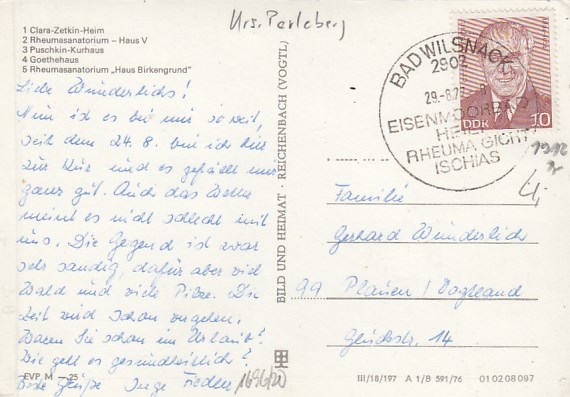 Krs. Perleberg
1 Clara-Zetkin-Heim
2 Rheumasanatorium – Haus V
3 Puschkin-Kurhaus
4 Goethehaus
5 Rheumasanatorium „Haus Birkengrund"
Liebe Wünderlichs!
Nun ist es bei mir soweit,
seit dem 24.8. bin ich hier
zur Kur und es gefällt mir
ganz gut. Auch das Wetter
meint es nicht schlecht mit
uns. Die Gegend ist zwar
sehr sandig, dafür aber viel
Wald und viele Pilze. Die
Zeit wird schon vergehen.
Waren Sie schon im Urlaub?
Wie geht es gesundheitlich?
Beste Grüße Inge
EVP M —25
1696/20
BILD UND HEIMAT · REICHENBACH (VOGTL)
BAD WILSNACK
2902
29.-8.
EISENMOORBAD
RHEUMA GICHT
ISCHIAS
DDR 10
1912
Familie
Gerhard Wunderlich
99 Plauen / Vogtland
14
III/18/197 A 1/B 591/76 01 02 08 097